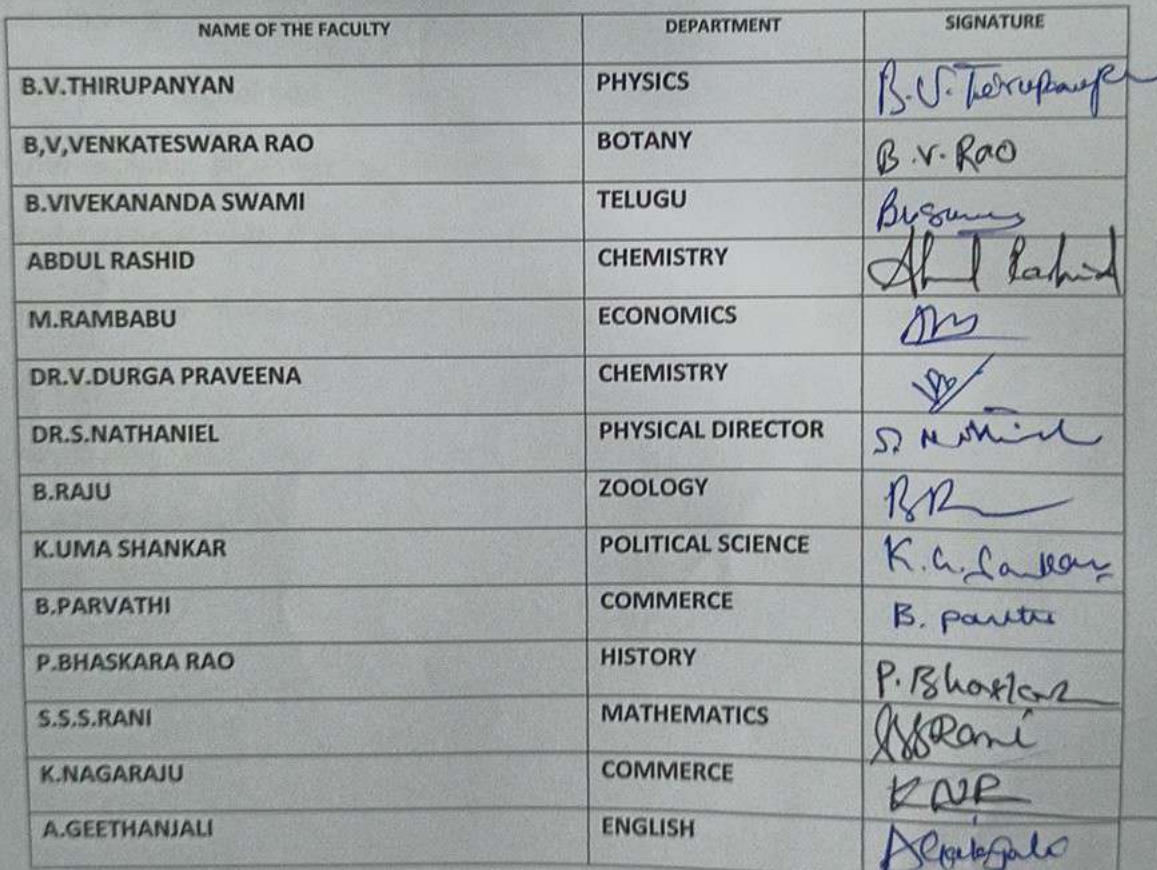 NAME OF THE FACULTY DEPARTMENT SIGNATURE
B.V.THIRUPANYAN PHYSICS B.V. Thirupanyan
B,V,VENKATESWARA RAO BOTANY B.V. Rao
B.VIVEKANANDA SWAMI TELUGU
ABDUL RASHID CHEMISTRY Abdul Rashid
M.RAMBABU ECONOMICS
DR.V.DURGA PRAVEENA CHEMISTRY
DR.S.NATHANIEL PHYSICAL DIRECTOR
B.RAJU ZOOLOGY BR
K.UMA SHANKAR POLITICAL SCIENCE
B.PARVATHI COMMERCE B.
P.BHASKARA RAO HISTORY P. Bhaskar
S.S.S.RANI MATHEMATICS SSSRani
K.NAGARAJU COMMERCE KNR
A.GEETHANJALI ENGLISH